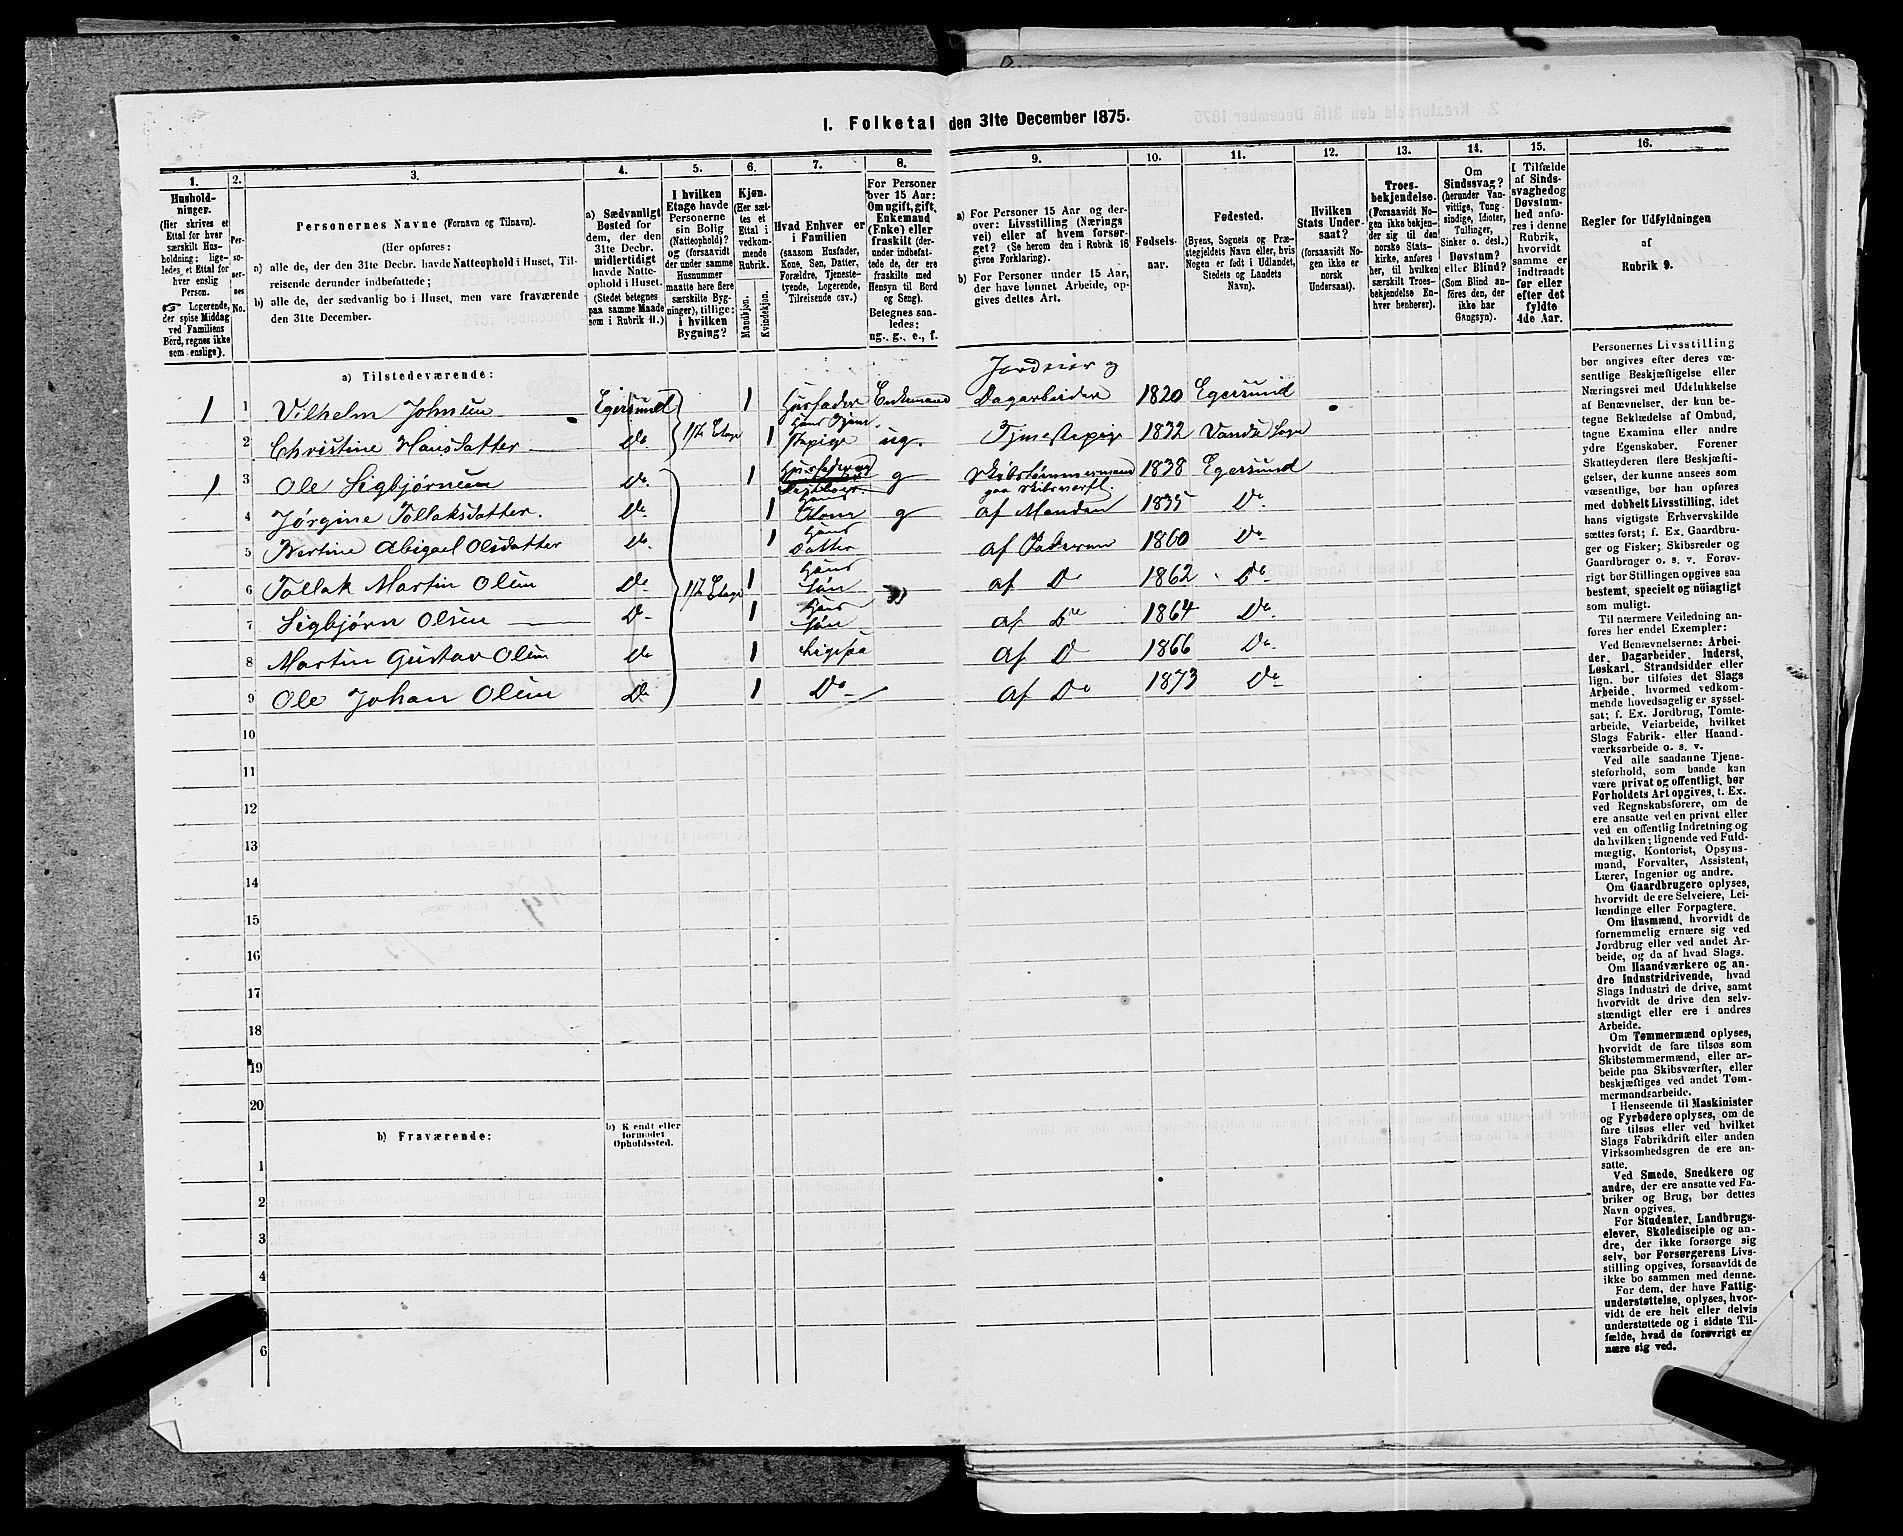 1. Folketal den 31te December 1875.
1. 2. 3. 4. 5. 6. 7. 8. 9. 10. 11. 12. 13. 14. 15. 16.
Hushold-
ninger.
(Her skrives et
Ettal for hver
særskilt Hus-
holdning; lige-
ledes et Ettal for
hver enslig
Person.
☞ Logerende,
der spise Middag
ved Familiens
Bord, regnes ikke
som enslige).
Per-
so-
ner-
nes
No.
Personernes Navne (Fornavn og Tilnavn).
(Her opføres:
a) alle de, der den 31te Decbr. havde Natteophold i Huset, Til-
reisende derunder indbefattede;
b) alle de, der sædvanlig bo i Huset, men vare fraværende
den 31te December.
a) Sædvanligt
Bosted for
dem, der den
31te Decbr.
midlertidigt
havde Natte-
ophold i Huset.
(Stedet betegnes
paa samme Maade
som i Rubrik 11.)
I hvilken
Etage havde
Personerne
sin Bolig
(Natteophold)?
og (forsaavidt
der under samme
Husnummer
maatte høre flere
særskilte Byg-
ninger), tillige:
i hvilken
Bygning?
Kjøn.
(Her sæt-
tes et
Ettal i
vedkom-
mende
Rubrik.
Mandkjøn.
Kvindekjøn.
Hvad Enhver er
i Familien
(saasom Husfader,
Kone, Søn, Datter,
Forældre, Tjeneste-
tyende, Logerende,
Tilreisende osv.)
For Personer
over 15 Aar:
Om ugift, gift,
Enkemand
(Enke) eller
fraskilt (der-
under indbefat-
tede de, der ere
fraskilte med
Hensyn til Bord
og Seng).
Betegnes saa-
ledes:
ug., g., e., f.
a) For Personer 15 Aar og der-
over: Livsstilling (Nærings-
vei) eller af hvem forsør-
get? (Se herom den i Rubrik 16
givne Forklaring).
b) For Personer under 15 Aar,
der have lønnet Arbeide, op-
gives dettes Art.
Fødsels-
aar.
Fødested.
(Byens, Sognets og Præ-
stegjeldets Navn eller, hvis
Nogen er født i Udlandet,
Stedets og Landets
Navn).
Hvilken
Stats Under-
saat?
(forsaavidt No-
gen ikke er
norsk
Undersaat).
Troes-
bekjendelse.
(Forsaavidt No-
gen ikke bekjen-
der sig til den
norske Stats-
kirke, anføres
her, til hvilken
særskilt Troes-
bekjendelse En-
hver henhører).
Om
Sindssvag?
(herunder Van-
vittige, Tung-
sindige, Idioter,
Tullinger,
Sinker o. desl.)
Døvstum?
eller Blind?
(Som Blind an-
føres den, der
ikke har
Gangsyn).
I Tilfælde
af Sinds-
svaghed og
Døvstum-
hed anfø-
res i denne
Rubrik,
hvorvidt
samme er
indtraadt
før eller
efter det
fyldte
4de Aar.
Regler for Udfyldningen
af
Rubrik 9.
a) Tilstedeværende:
1 1 Vilhelm Johnsen Egersund 1 Husfader Enkemand Jordeier og Dagarbeider 1820 Egersund
2 Christine Hansdatter Do 1ste Etage 1 Hans Tjene-stepige ug. Tjenestepige 1832 Vandø Sogn
1 3 Ole Sigbjørnsen Do 1 Husfader g Skibstømmermand paa Skibsværft. 1838 Egersund
4 Jørgine Tollaksdatter. Do 1 Hans Kone g af Manden 1835 Do
5 Bertine Abigael Olsdatter Do 1 Hans Datter af Faderen 1860 Do
6 Tollak Martin Olsen Do 1ste Etage 1 Hans Søn af Do 1862 Do
7 Sigbjørn Olsen Do 1 Hans Søn af Do 1864 Do
8 Martin Gustav Olsen Do 1 Ligesaa af Do 1866 Do
9 Ole Johan Olsen Do 1 Do af Do 1873 Do
10
11
12
13
14
15
16
17
18
19
20
b) Fraværende:
b) Kjendt eller
formodet
Opholdssted.
1
2
3
4
6
Personernes Livsstilling
bør angives efter deres væ-
sentlige Beskjæftigelse eller
Næringsvei med Udelukkelse
af Benævnelser, der kun be-
tegne Beklædelse af Ombud,
tagne Examina eller andre
ydre Egenskaber. Forener
Skatteyderen flere Beskjæfti-
gelser, der kunne ansees som
væsentlige, bør han opføres
med dobbelt Livsstilling, idet
hans vigtigste Erhvervskilde
sættes først; f. Ex. Gaardbru-
ger og Fisker; Skibsreder og
Gaardbruger o. s. v. Forøv-
rigt bør Stillingen opgives saa
bestemt, specielt og nøiagtigt
som muligt.
Til nærmere Veiledning an-
føres her endel Exempler:
Ved Benævnelserne: Arbei-
der, Dagarbeider, Inderst,
Løskarl, Strandsidder eller
lign. bør tilføies det Slags
Arbeide, hvormed vedkom-
mende hovedsagelig er syssel-
sat; f. Ex. Jordbrug, Tomte-
arbeide, Veiarbeide, hvilket
Slags Fabrik- eller Haand-
værksarbeide o. s. v.
Ved alle saadanne Tjene-
steforhold, som baade kan
være privat og offentligt, bør
Forholdets Art opgives, t. Ex.
ved Regnskabsførere, om de
ere ansatte ved en privat eller
ved en offentlig Indretning og
da hvilken; lignende ved Fuld-
mægtig, Kontorist, Opsyns-
mand, Forvalter, Assistent,
Lærer, Ingeniør og andre.
Om Gaardbrugere oplyses,
hvorvidt de ere Selveiere, Lei-
lændinge eller Forpagtere.
Om Husmænd, hvorvidt de
fornemmelig ernære sig ved
Jordbrug eller ved andet Ar-
beide, og da af hvad Slags.
Om Haandværkere og an-
dre Industridrivende, hvad
Slags Industri de drive, samt
hvorvidt de drive den selv-
stændigt eller ere i andres
Arbeide.
Om Tømmermænd oplyses,
hvorvidt de fare tilsøs som
Skibstømmermænd, eller ar-
beide paa Skibsværfter, eller
beskjæftiges ved andet Tøm-
mermandsarbeide.
I Henseende til Maskinister
og Fyrbødere oplyses, om de
fare tilsøs eller ved hvilket
Slags Fabrikdrift eller anden
Virksomhedsgren de ere an-
satte.
Ved Smede, Snedkere og
andre, der ere ansatte ved Fa-
briker og Brug, bør dettes
Navn opgives.
For Studenter, Landbrugs-
elever, Skoledisciple og an-
dre, der ikke forsørge sig
selv, bør Forsørgerens Livs-
stilling opgives, forsaavidt de
ikke bo sammen med denne.
For dem, der have Fattig-
understøttelse, oplyses, hvor-
vidt de ere helt eller delvis
understøttede og i sidste Til-
fælde, hvad de forøvrigt er-
nære sig ved.